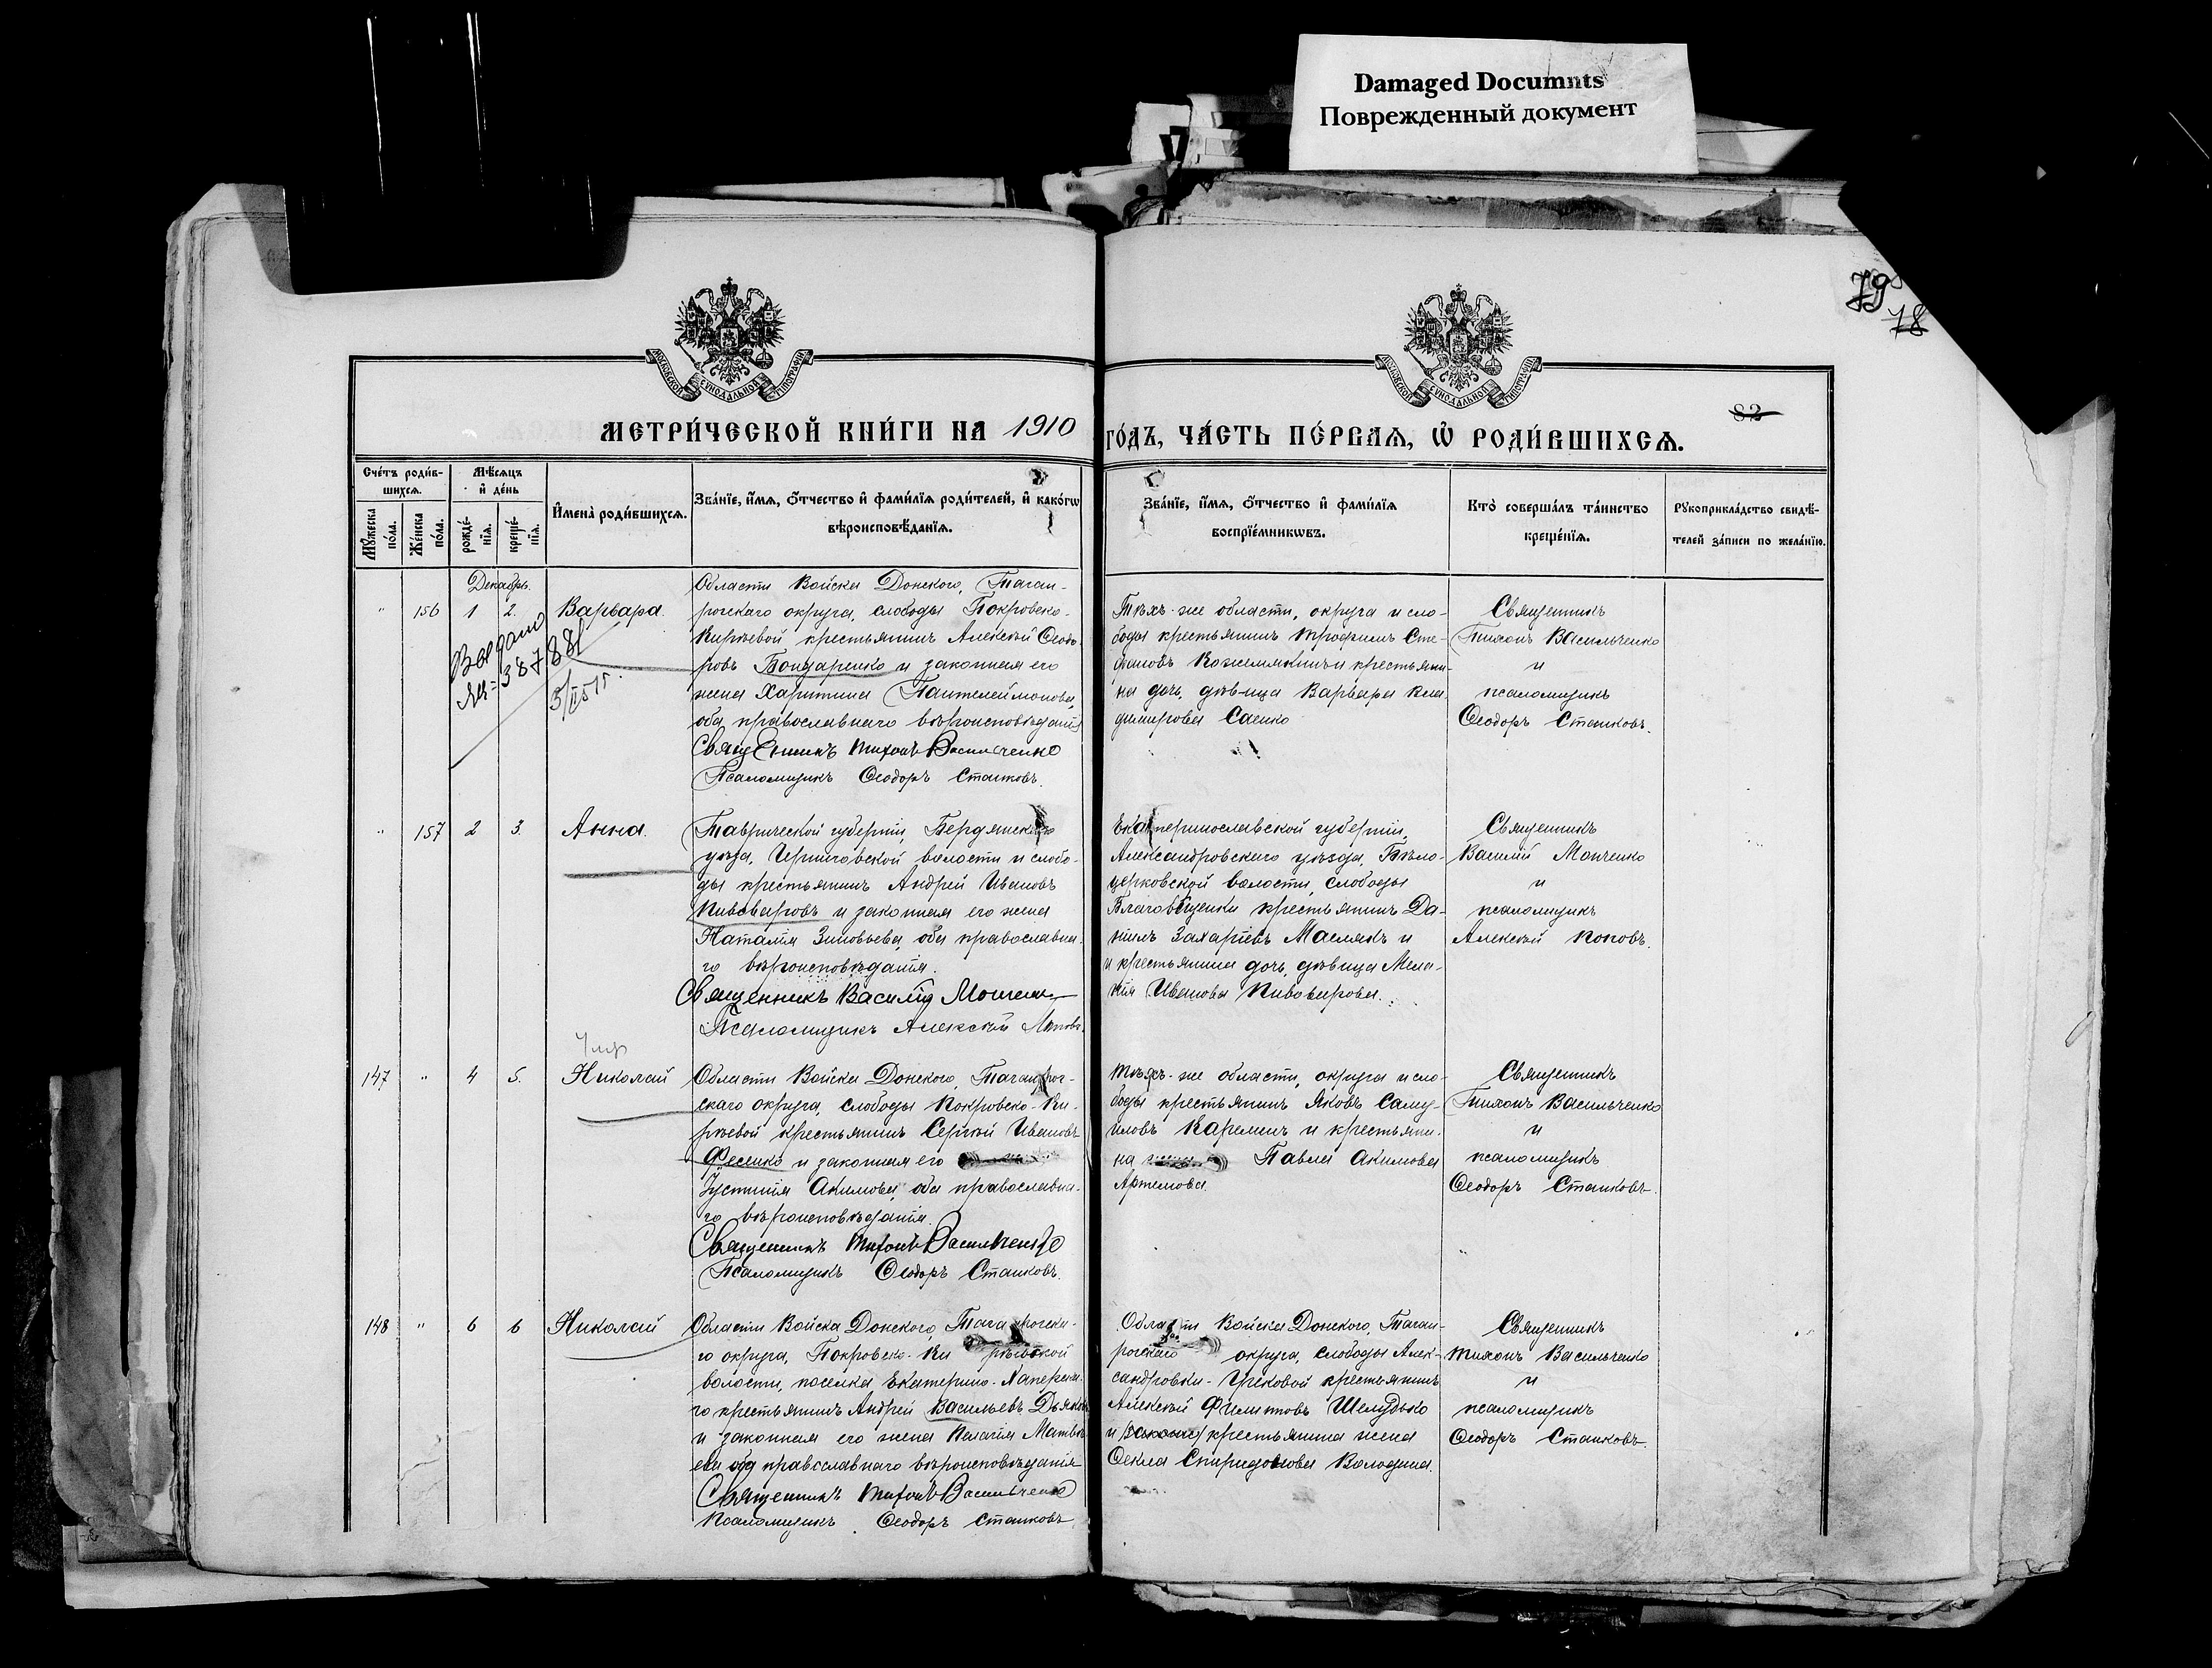 Damaged Documnts
Поврежденный документ
79
78
МОСКОВСКОЙ СѴНОДАЛЬНОЙ ТИПОГРАФІИ
МОСКОВСКОЙ СѴНОДАЛЬНОЙ ТИПОГРАФІИ
82
МЕТРИ́ЧЕСКОЙ КНИ́ГИ НА 1910 ГО́ДЪ, ЧА́СТЬ ПЕ́РВАѦ, Ѡ҆ РОДИ́ВШИХСѦ.
Сче́тъ роди́в-
шихсѧ.
Мꙋ́жеска по́ла.
Же́нска по́ла.
Мѣ́сѧцъ
и҆ де́нь
рожде́-
нїѧ.
креще́-
нїѧ.
И҆мена̀ роди́вшихсѧ.
Зва́нїе, и҆́мѧ, ѻ҆́тчество и҆ фами́лїѧ роди́телей, и҆ како́гѡ
вѣроисповѣ́данїѧ.
Зва́нїе, и҆́мѧ, ѻ҆́тчество и҆ фами́лїѧ
воспрїе́мникѡвъ.
Кто̀ соверша́лъ та́инство
креще́нїѧ.
Рꙋкоприкла́дство свидѣ́-
телей за́писи по жела́нїю.
Декабрь.
" 156 1 2. Варвара.
Выдано
№ 387881
5/II 51 г.
Области Войска Донского, Таган-
рогскаго округа, слободы Покровско-
Кирѣевой крестьянинъ Алексѣй Ѳеодо-
ровъ Бондаренко и законная его
жена Харитина Пантелеймонова,
оба православнаго вѣроисповѣданія
Священникъ Тихонъ Васильченко
Псаломщикъ Ѳеодоръ Станковъ.
Тѣхъ-же области, округа и сло-
боды крестьянинъ Трофимъ Сте-
фановъ Кожемякинъ и крестьяни-
на дочь, дѣвица Варвара Вла-
димирова Саенко
Священникъ
Тихонъ Васильченко
и
псаломщикъ
Ѳеодоръ Станковъ.
" 157 2 3. Анна.
Таврической губерніи, Бердянскаго
уѣзда, Черниговской волости и слобо-
ды крестьянинъ Андрей Ивановъ
Пивоваровъ и законная его жена
Наталія Зиновьева, оба православна-
го вѣроисповѣданія.
Священникъ Василій
Псаломщикъ Алексѣй Поповъ.
Екатеринославской губерніи,
Александровскаго уѣзда, Бѣло-
церковской волости, слободы
Благовѣщенки крестьянинъ Да-
ніилъ Захаріевъ Маслякъ и
и крестьянина дочь, дѣвица Мела-
нія Иванова Пивоварова.
Священникъ
Василій Мотченко
и
псаломщикъ
Алексѣй Поповъ.
Умер
147 " 4 5. Николай
Области Войска Донского, Таганрог-
скаго округа, слободы Покровско-Ки-
рѣевой крестьянинъ Сергѣй Ивановъ
Фесенко и законная его
Іустинія Акимова, оба православна-
го вѣроисповѣданія.
Священникъ Тихонъ Васильченко
Псаломщикъ Ѳеодоръ Станковъ.
Тѣхъ-же области, округа и сло-
боды крестьянинъ Яковъ Саму-
иловъ Каремин и крестьяни-
на Павла Акимова
Артемова.
Священникъ
Тихонъ Васильченко
и
псаломщикъ
Ѳеодоръ Станковъ.
148 " 6 6 Николай
Области Войска Донского, Таганрогска-
го округа, Покровско-Кирѣевской
волости, поселка Екатерино-Хапёрска-
го крестьянинъ Андрей Васильевъ Дьяков
и законная его жена Пелагія Матвѣ-
ева оба православнаго вѣроисповѣданія
Священникъ Тихонъ Васильченко
Псаломщикъ Ѳеодоръ Станковъ
Области Войска Донского, Таган-
рогскаго округа, слободы Алек-
сандровки-Грековой крестьянинъ
Алексѣй Филипповъ Шелудько
и крестьянина жена
Ѳекла Спиридонова Володина.
Священникъ
Тихонъ Васильченко
и
псаломщикъ
Ѳеодоръ Станковъ.